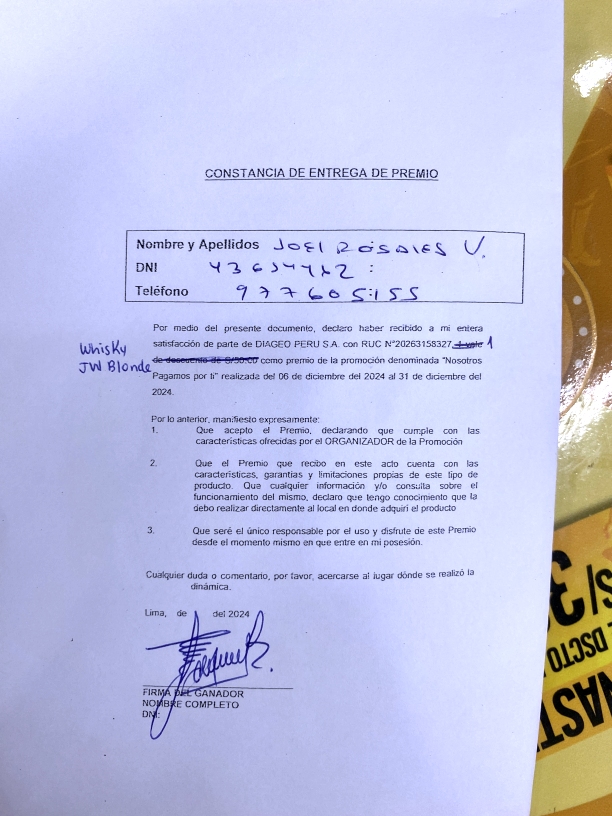 CONSTANCIA DE ENTREGA DE PREMIO
Nombre y Apellidos JOEL ROSALES V.
DNI
Teléfono 977605155
Por medio del presente documento, declaro haber recibido a mi entera
satisfacción de parte de DIAGEO PERU S.A. con RUC N°20263158327, 1 vale 1
Whisky
JW Blonde
de descuento de S/30.00 como premio de la promoción denominada "Nosotros
Pagamos por ti" realizada del 06 de diciembre del 2024 al 31 de diciembre del
2024.
Por lo anterior, manifiesto expresamente:
1. Que acepto el Premio, declarando que cumple con las
características ofrecidas por el ORGANIZADOR de la Promoción
2. Que el Premio que recibo en este acto cuenta con las
características, garantías y limitaciones propias de este tipo de
producto. Que cualquier información y/o consulta sobre el
funcionamiento del mismo, declaro que tengo conocimiento que la
debo realizar directamente al local en donde adquirí el producto
3. Que seré el único responsable por el uso y disfrute de este Premio
desde el momento mismo en que entre en mi posesión.
Cualquier duda o comentario, por favor, acercarse al lugar dónde se realizó la
dinámica.
Lima, de del 2024
FIRMA DEL GANADOR
NOMBRE COMPLETO
DNI:
S/3
DSCTO
NAST